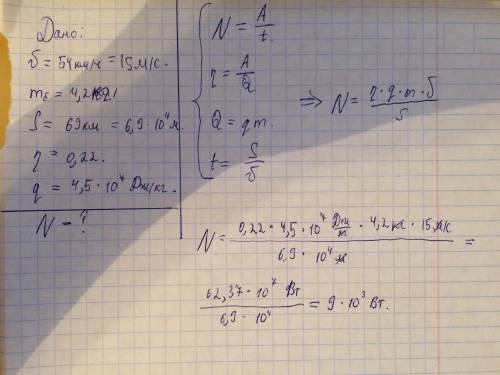 Дано:
υ = 54 км/ч = 15 м/с.
m_б = 4,2 кг
S = 69 км = 6,9 · 10⁴ м.
η = 0,22.
q = 4,5 · 10⁴ Дж/кг.
N – ?
N = A/t.
η = A/Q
Q = qm.
t = S/υ
=> N = η · q · m · υ / S
N = 0,22 · 4,5 · 10⁷ Дж/кг · 4,2 кг · 15 м/с / 6,9 · 10⁴ м =
62,37 · 10⁷ Вт / 6,9 · 10⁴ = 9 · 10³ Вт.